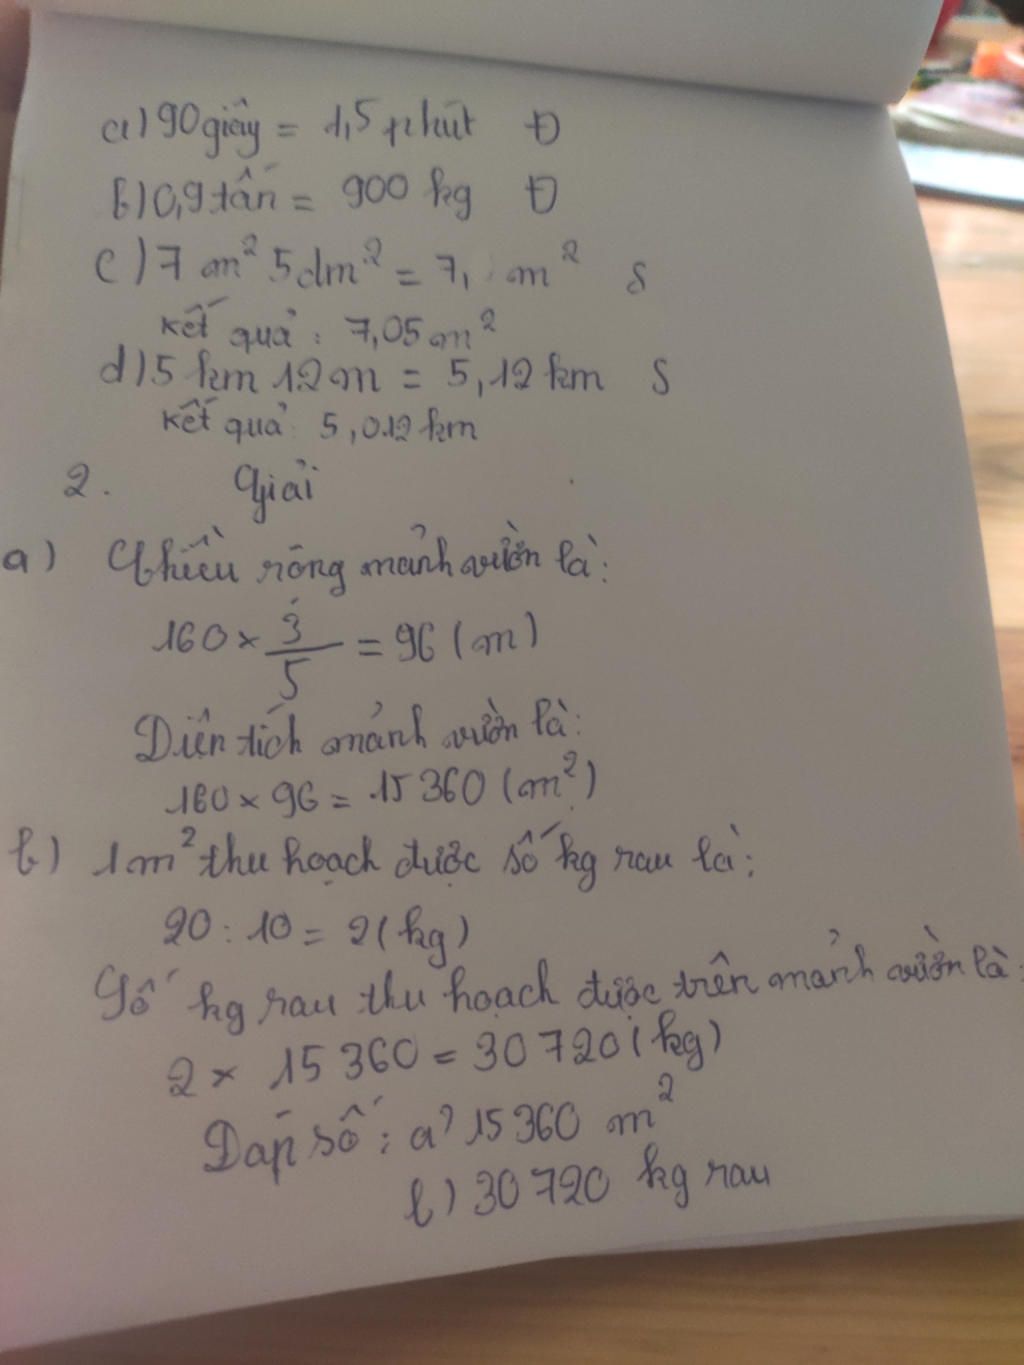 a) 90 giây = 1,5 phút Đ
b) 0,9 tấn = 900 kg Đ
c) 7 m² 5 dm² = 7, m² S
kết quả : 7,05 m²
d) 5 km 12 m = 5,12 km S
kết quả : 5,012 km
2. Giải
a) Chiều rộng mảnh vườn là:
160 × 3/5 = 96 (m)
Diện tích mảnh vườn là:
160 × 96 = 15 360 (m²)
b) 1m² thu hoạch được số kg rau là:
20 : 10 = 2 (kg)
Số kg rau thu hoạch được trên mảnh vườn là:
2 × 15 360 = 30 720 (kg)
Đáp số : a) 15 360 m²
b) 30 720 kg rau